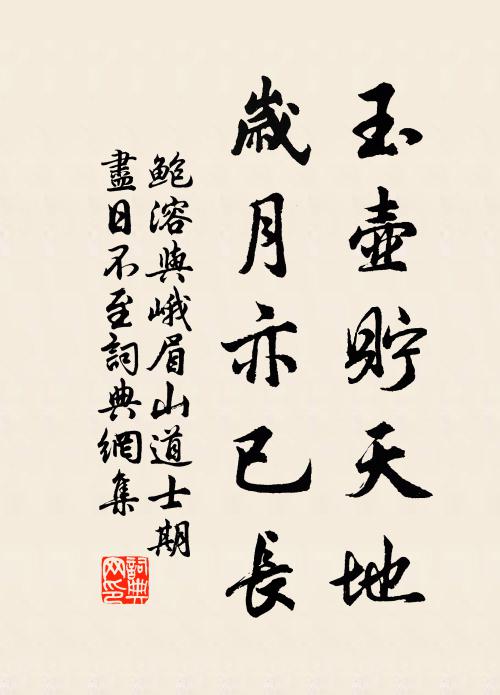 玉壺貯天地
歲月亦已長
鮑溶與峨眉山道士期
盡日不至詞典網集
詞典
网印